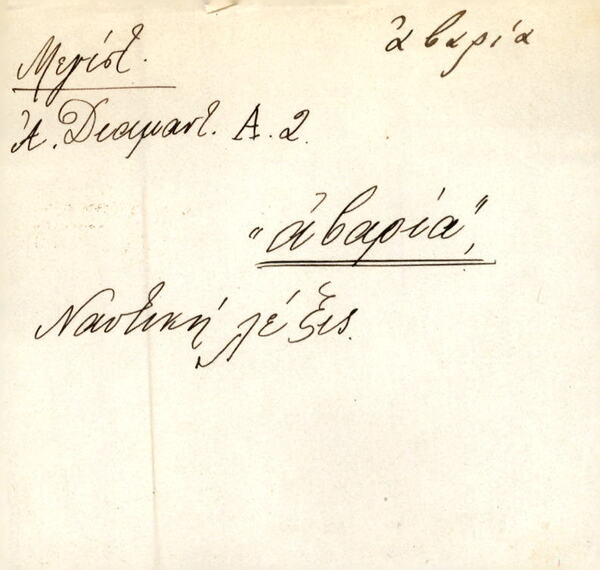 ἀβαρία
Μεγίστ.
Ἀ. Διαμαντ. Α. 2.
"ἀβαρία",
Ναυτική λέξις.